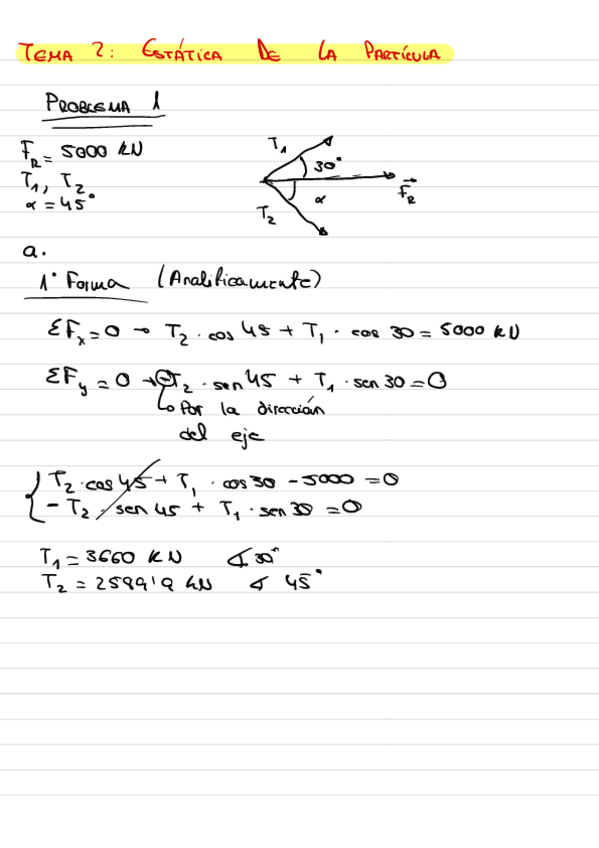 TEMA 2: ESTÁTICA DE LA PARTÍCULA
PROBLEMA 1
F_R = 5000 KN
T_1, T_2
α = 45°
T_1
30°
F_R
α
T_2
a.
1° Forma (Analiticamente)
ΣF_x = 0 → T_2 · cos 45 + T_1 · cos 30 = 5000 KN
ΣF_y = 0 → -T_2 · sen 45 + T_1 · sen 30 = 0
↳ Por la dirección
del eje
T_2 · cos 45 + T_1 · cos 30 - 5000 = 0
- T_2 · sen 45 + T_1 · sen 30 = 0
T_1 = 3660 KN ∢ 30°
T_2 = 2589'9 KN ∢ 45°